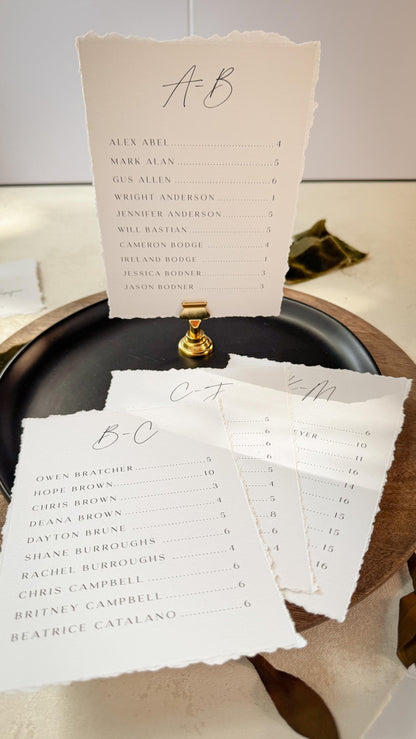 A-B
ALEX ABEL 4
MARK ALAN 5
GUS ALLEN 6
WRIGHT ANDERSON 1
JENNIFER ANDERSON 5
WILL BASTIAN 5
CAMERON BODGE 4
IRELAND BODGE 1
JESSICA BODNER 3
JASON BODNER 3
B-C
OWEN BRATCHER 5
HOPE BROWN 10
CHRIS BROWN 3
DEANA BROWN 4
DAYTON BRUNE 5
SHANE BURROUGHS 6
RACHEL BURROUGHS 4
CHRIS CAMPBELL 6
BRITNEY CAMPBELL 6
BEATRICE CATALANO 6
5
6
6
4
5
8
6
6
-M
6
EYER 10
11
16
14
16
15
15
16